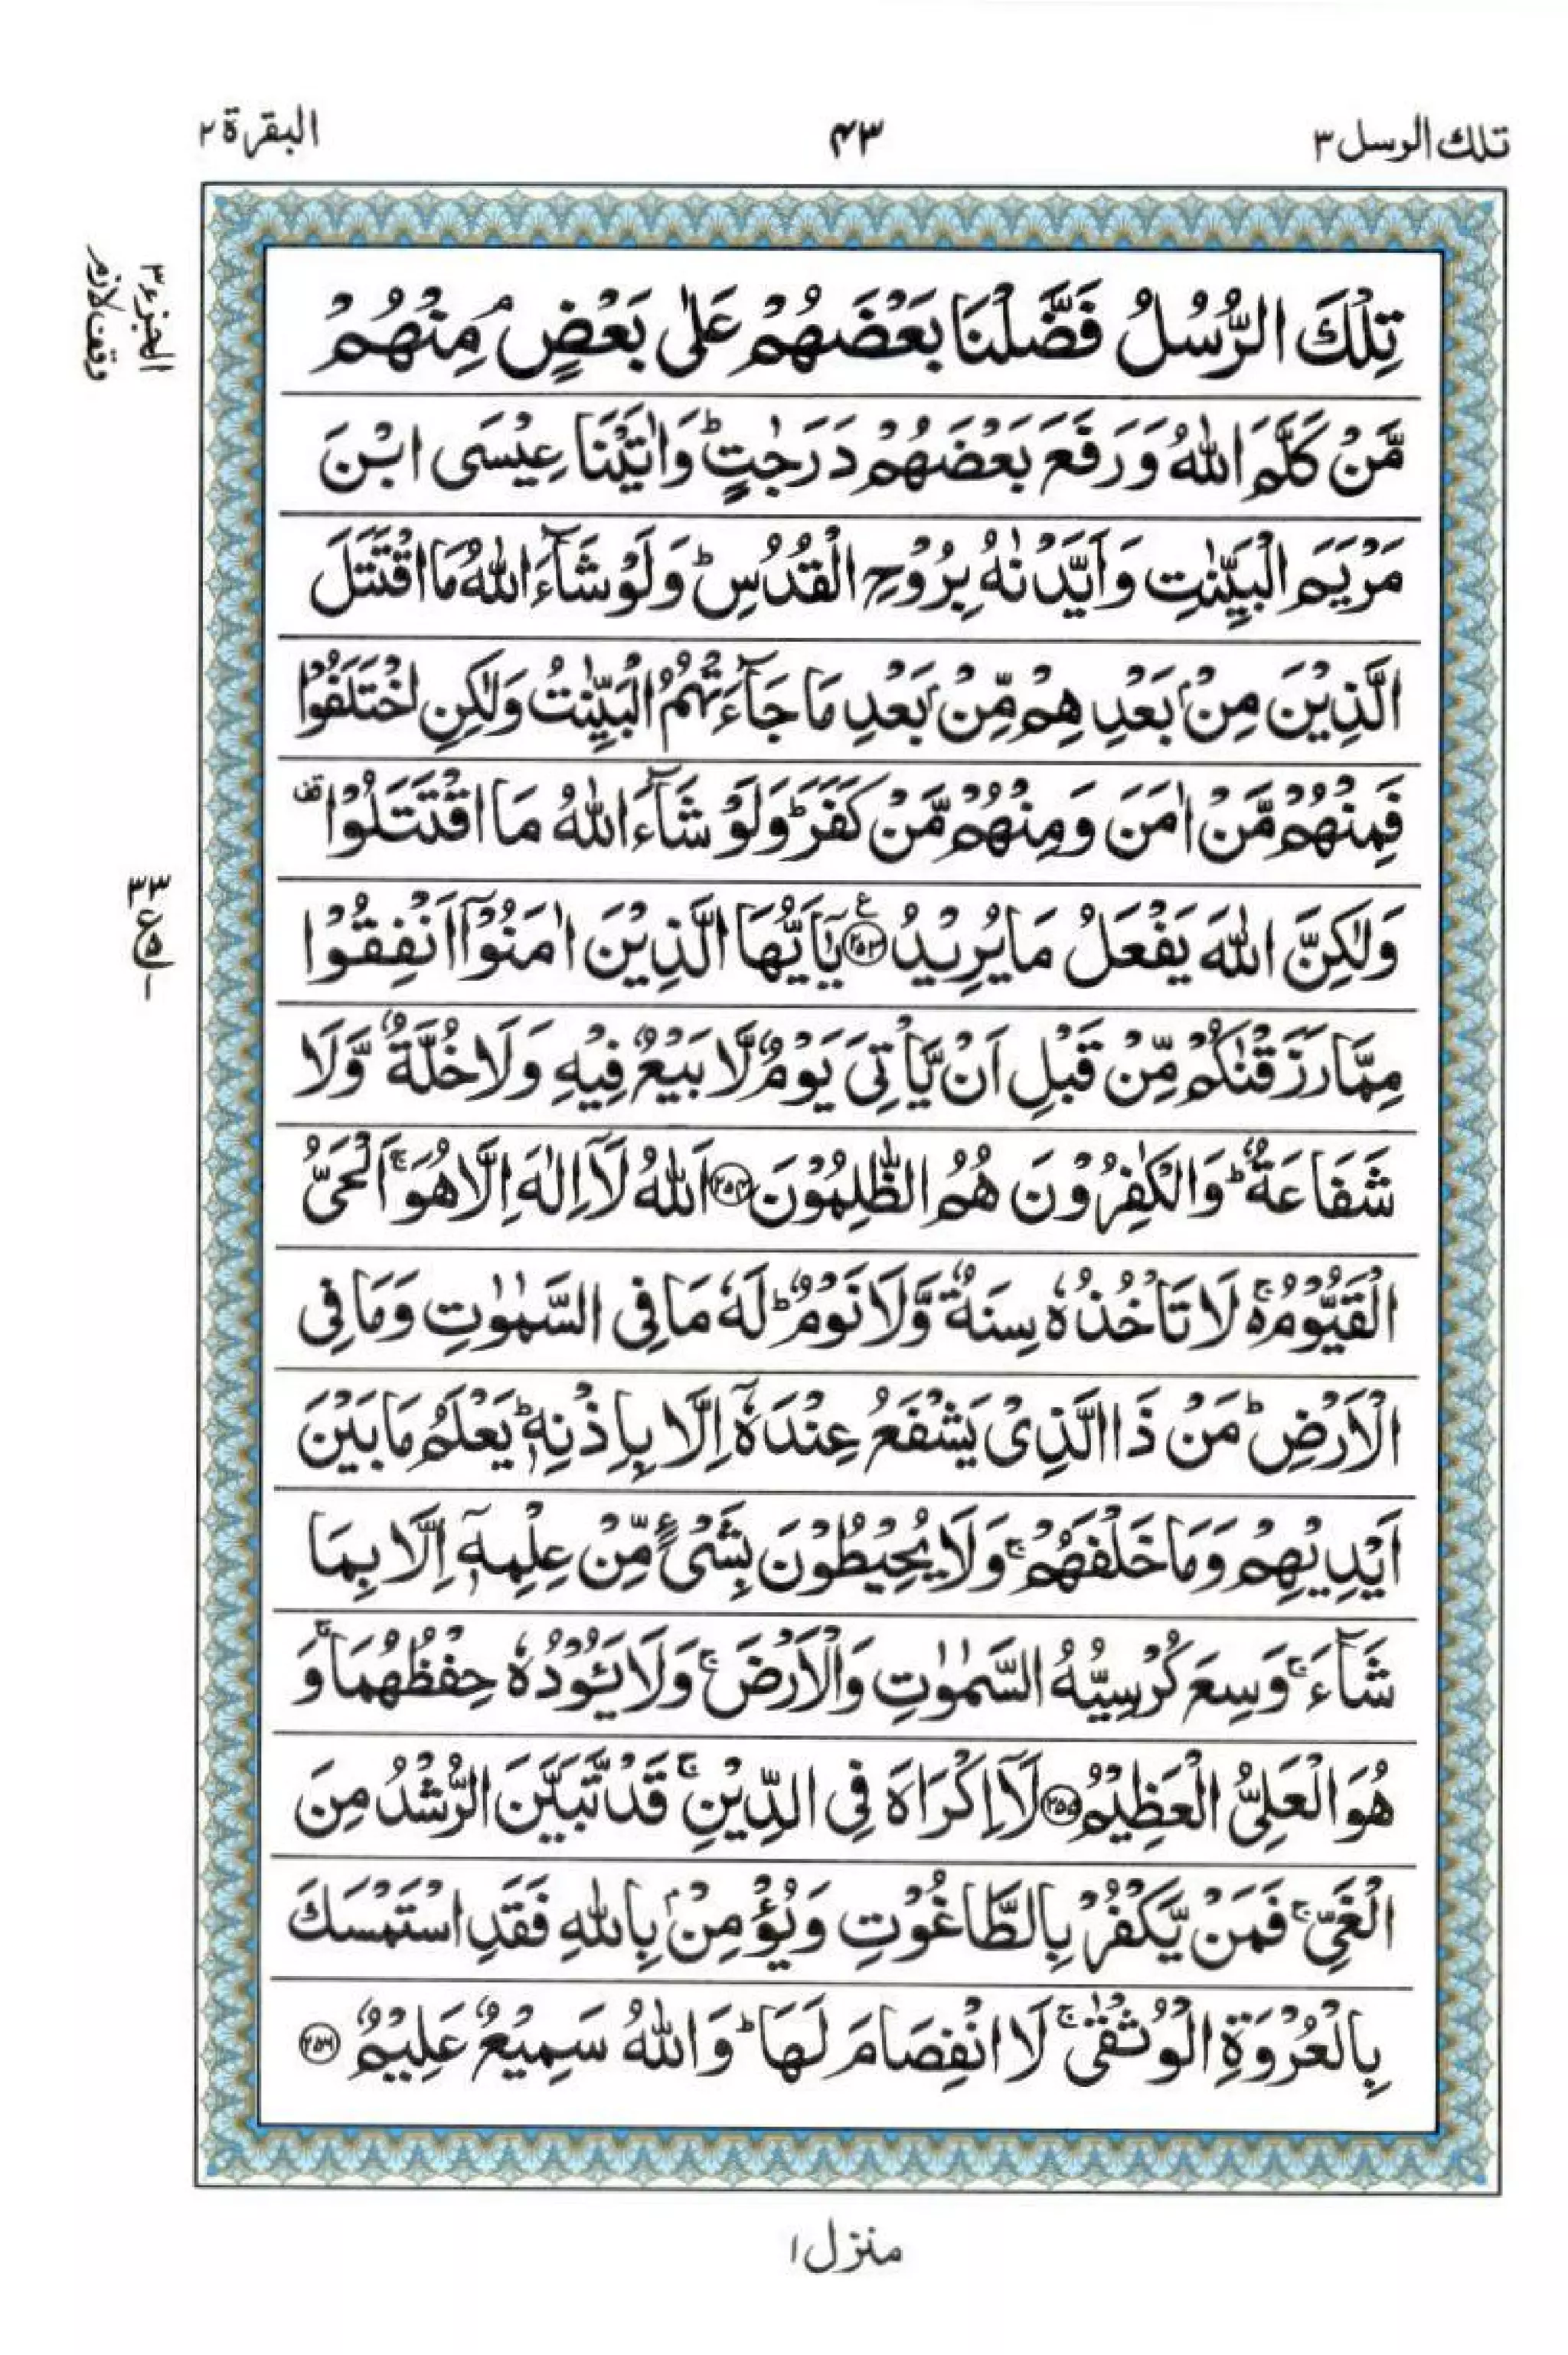 تلك الرسل ٣
٤٣
البقرة ٢
الجزء ٣
وقف لازم
تِلْكَ الرُّسُلُ فَضَّلْنَا بَعْضَهُمْ عَلٰى بَعْضٍ ۘ مِنْهُمْ
مَّنْ كَلَّمَ اللّٰهُ وَرَفَعَ بَعْضَهُمْ دَرَجٰتٍ ؕ وَاٰتَيْنَا عِيْسَى ابْنَ
مَرْيَمَ الْبَيِّنٰتِ وَاَيَّدْنٰهُ بِرُوْحِ الْقُدُسِ ؕ وَلَوْ شَآءَ اللّٰهُ مَا اقْتَتَلَ
الَّذِيْنَ مِنْۢ بَعْدِهِمْ مِّنْۢ بَعْدِ مَا جَآءَتْهُمُ الْبَيِّنٰتُ وَلٰكِنِ اخْتَلَفُوْا
فَمِنْهُمْ مَّنْ اٰمَنَ وَمِنْهُمْ مَّنْ كَفَرَ ؕ وَلَوْ شَآءَ اللّٰهُ مَا اقْتَتَلُوْا قف
وَلٰكِنَّ اللّٰهَ يَفْعَلُ مَا يُرِيْدُ ﴿٢٥٣﴾ ع يٰۤاَيُّهَا الَّذِيْنَ اٰمَنُوْۤا اَنْفِقُوْا
٣٣
ع ٥
١
مِمَّا رَزَقْنٰكُمْ مِّنْ قَبْلِ اَنْ يَّاْتِيَ يَوْمٌ لَّا بَيْعٌ فِيْهِ وَلَا خُلَّةٌ وَّلَا
شَفَاعَةٌ ؕ وَالْكٰفِرُوْنَ هُمُ الظّٰلِمُوْنَ ﴿٢٥٤﴾ اَللّٰهُ لَاۤ اِلٰهَ اِلَّا هُوَ ۚ اَلْحَيُّ
الْقَيُّوْمُ ۚ لَا تَاْخُذُهٗ سِنَةٌ وَّلَا نَوْمٌ ؕ لَهٗ مَا فِى السَّمٰوٰتِ وَمَا فِى
الْاَرْضِ ؕ مَنْ ذَا الَّذِيْ يَشْفَعُ عِنْدَهٗۤ اِلَّا بِاِذْنِهٖ ؕ يَعْلَمُ مَا بَيْنَ
اَيْدِيْهِمْ وَمَا خَلْفَهُمْ ۚ وَلَا يُحِيْطُوْنَ بِشَيْءٍ مِّنْ عِلْمِهٖۤ اِلَّا بِمَا
شَآءَ ۚ وَسِعَ كُرْسِيُّهُ السَّمٰوٰتِ وَالْاَرْضَ ۚ وَلَا يَئُوْدُهٗ حِفْظُهُمَا ۚ وَ
هُوَ الْعَلِيُّ الْعَظِيْمُ ﴿٢٥٥﴾ لَاۤ اِكْرَاهَ فِى الدِّيْنِ ۚ قَدْ تَّبَيَّنَ الرُّشْدُ مِنَ
الْغَيِّ ۚ فَمَنْ يَّكْفُرْ بِالطَّاغُوْتِ وَيُؤْمِنْۢ بِاللّٰهِ فَقَدِ اسْتَمْسَكَ
بِالْعُرْوَةِ الْوُثْقٰى ۚ لَا انْفِصَامَ لَهَا ؕ وَاللّٰهُ سَمِيْعٌ عَلِيْمٌ ﴿٢٥٦﴾
منزل ١